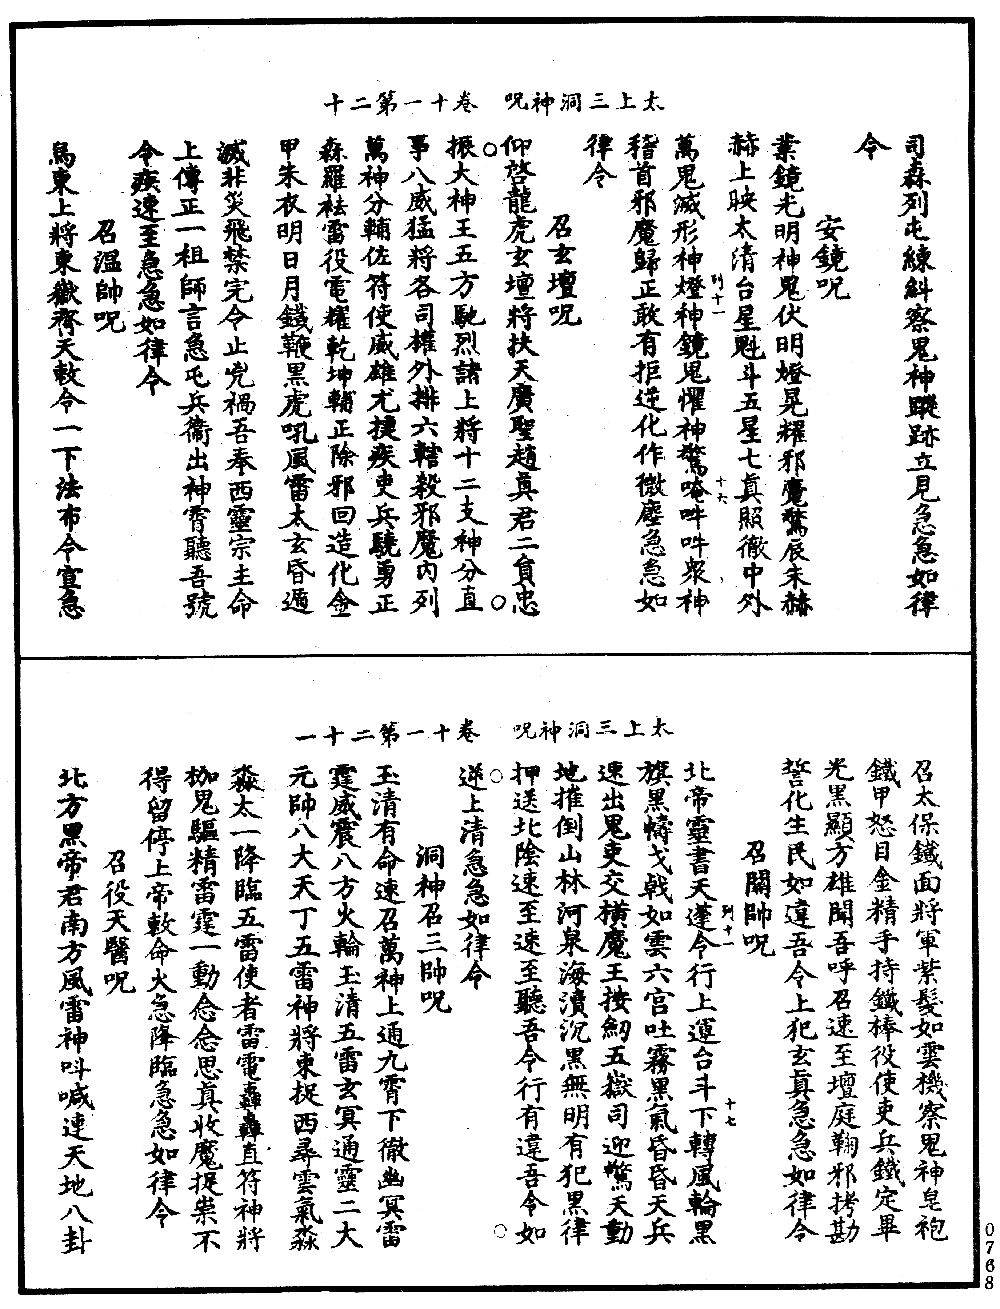 太上三洞神呪 卷十一第二十
司森列屯練糾察鬼神蹤跡立見急急如律
令
安鏡呪
業鏡光明神鬼伏明燈晃耀邪魔驚辰朱赫
赫上映太清台星魁斗五星七真照徹中外
萬鬼滅形神燈神鏡鬼懼神驚唵吽吽眾神
列十一
十六
稽首邪魔歸正敢有拒逆化作微塵急急如
律令
召玄壇呪
仰啓龍虎玄壇將扶天廣聖趙真君二員忠
振大神王五方馳烈諸上將十二支神分直
事八威猛將各司權外排六轄殺邪魔內列
萬神分輔佐符使威雄尤捷疾吏兵驍勇正
森羅袪雷役電耀乾坤輔正除邪回造化金
甲朱衣明日月錢鞭黑虎吼風雷太玄昏遁
滅非災飛禁完令止兇禍吾奉西靈宗主命
上傳正一祖師言急屯兵衞出神霄聽吾號
令疾速至急急如律令
召溫帥呪
烏東上將東嶽齊天敕令一下法布令宣急
太上三洞神呪 卷十一第二十一
召太保鐵面將軍紫髮如雲機察鬼神皂袍
鐵甲怒目金精手持鐵棒役使吏兵鐵定畢
光黑顯方雄聞吾呼召速至壇庭鞠邪拷勘
誓化生民如違吾令上犯玄真急急如律令
召關帥呪
北帝靈書天蓬令行上運台斗下轉風輪黑
列十一
十七
旗黑幬戈戟如雲六宮吐霧黑氣昏昏天兵
速出鬼吏交橫魔王按劒五嶽司迎驚天動
地摧倒山林河泉海瀆沉黑無明有犯黑律
押送北陰速至速至聽吾令行有違吾令如
逆上清急急如律令
洞神召三帥呪
玉清有命速召萬神上通九霄下徹幽冥雷
霆威震八方火輪玉清五雷玄冥通靈二大
元帥八大天丁五雷神將東捉西尋雲氣淼
淼太一降臨五雷使者雷電轟轟直符神將
枷鬼驅精雷霆一動念念思真收魔捉祟不
得留停上帝敕命火急降臨急急如律令
召役天醫呪
北方黑帝君南方風雷神呌喊連天地八卦
0768